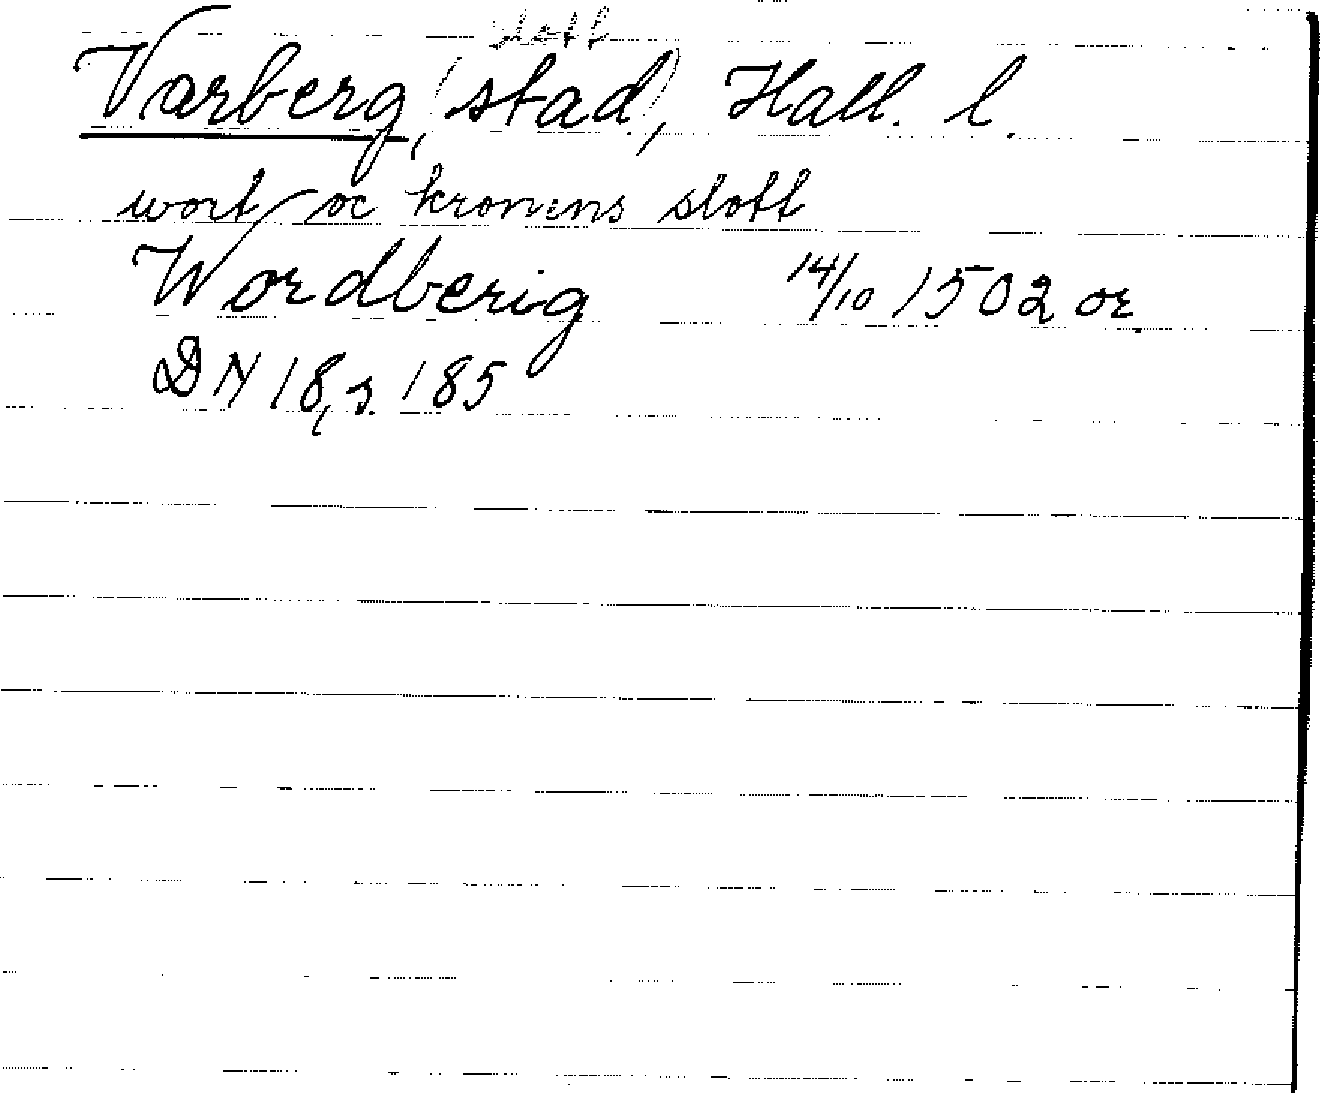 slott
Varberg, (stad), Hall. l.
wort oc kronens slott
Wordberig 14/10 1502 or.
DN 18, s. 185